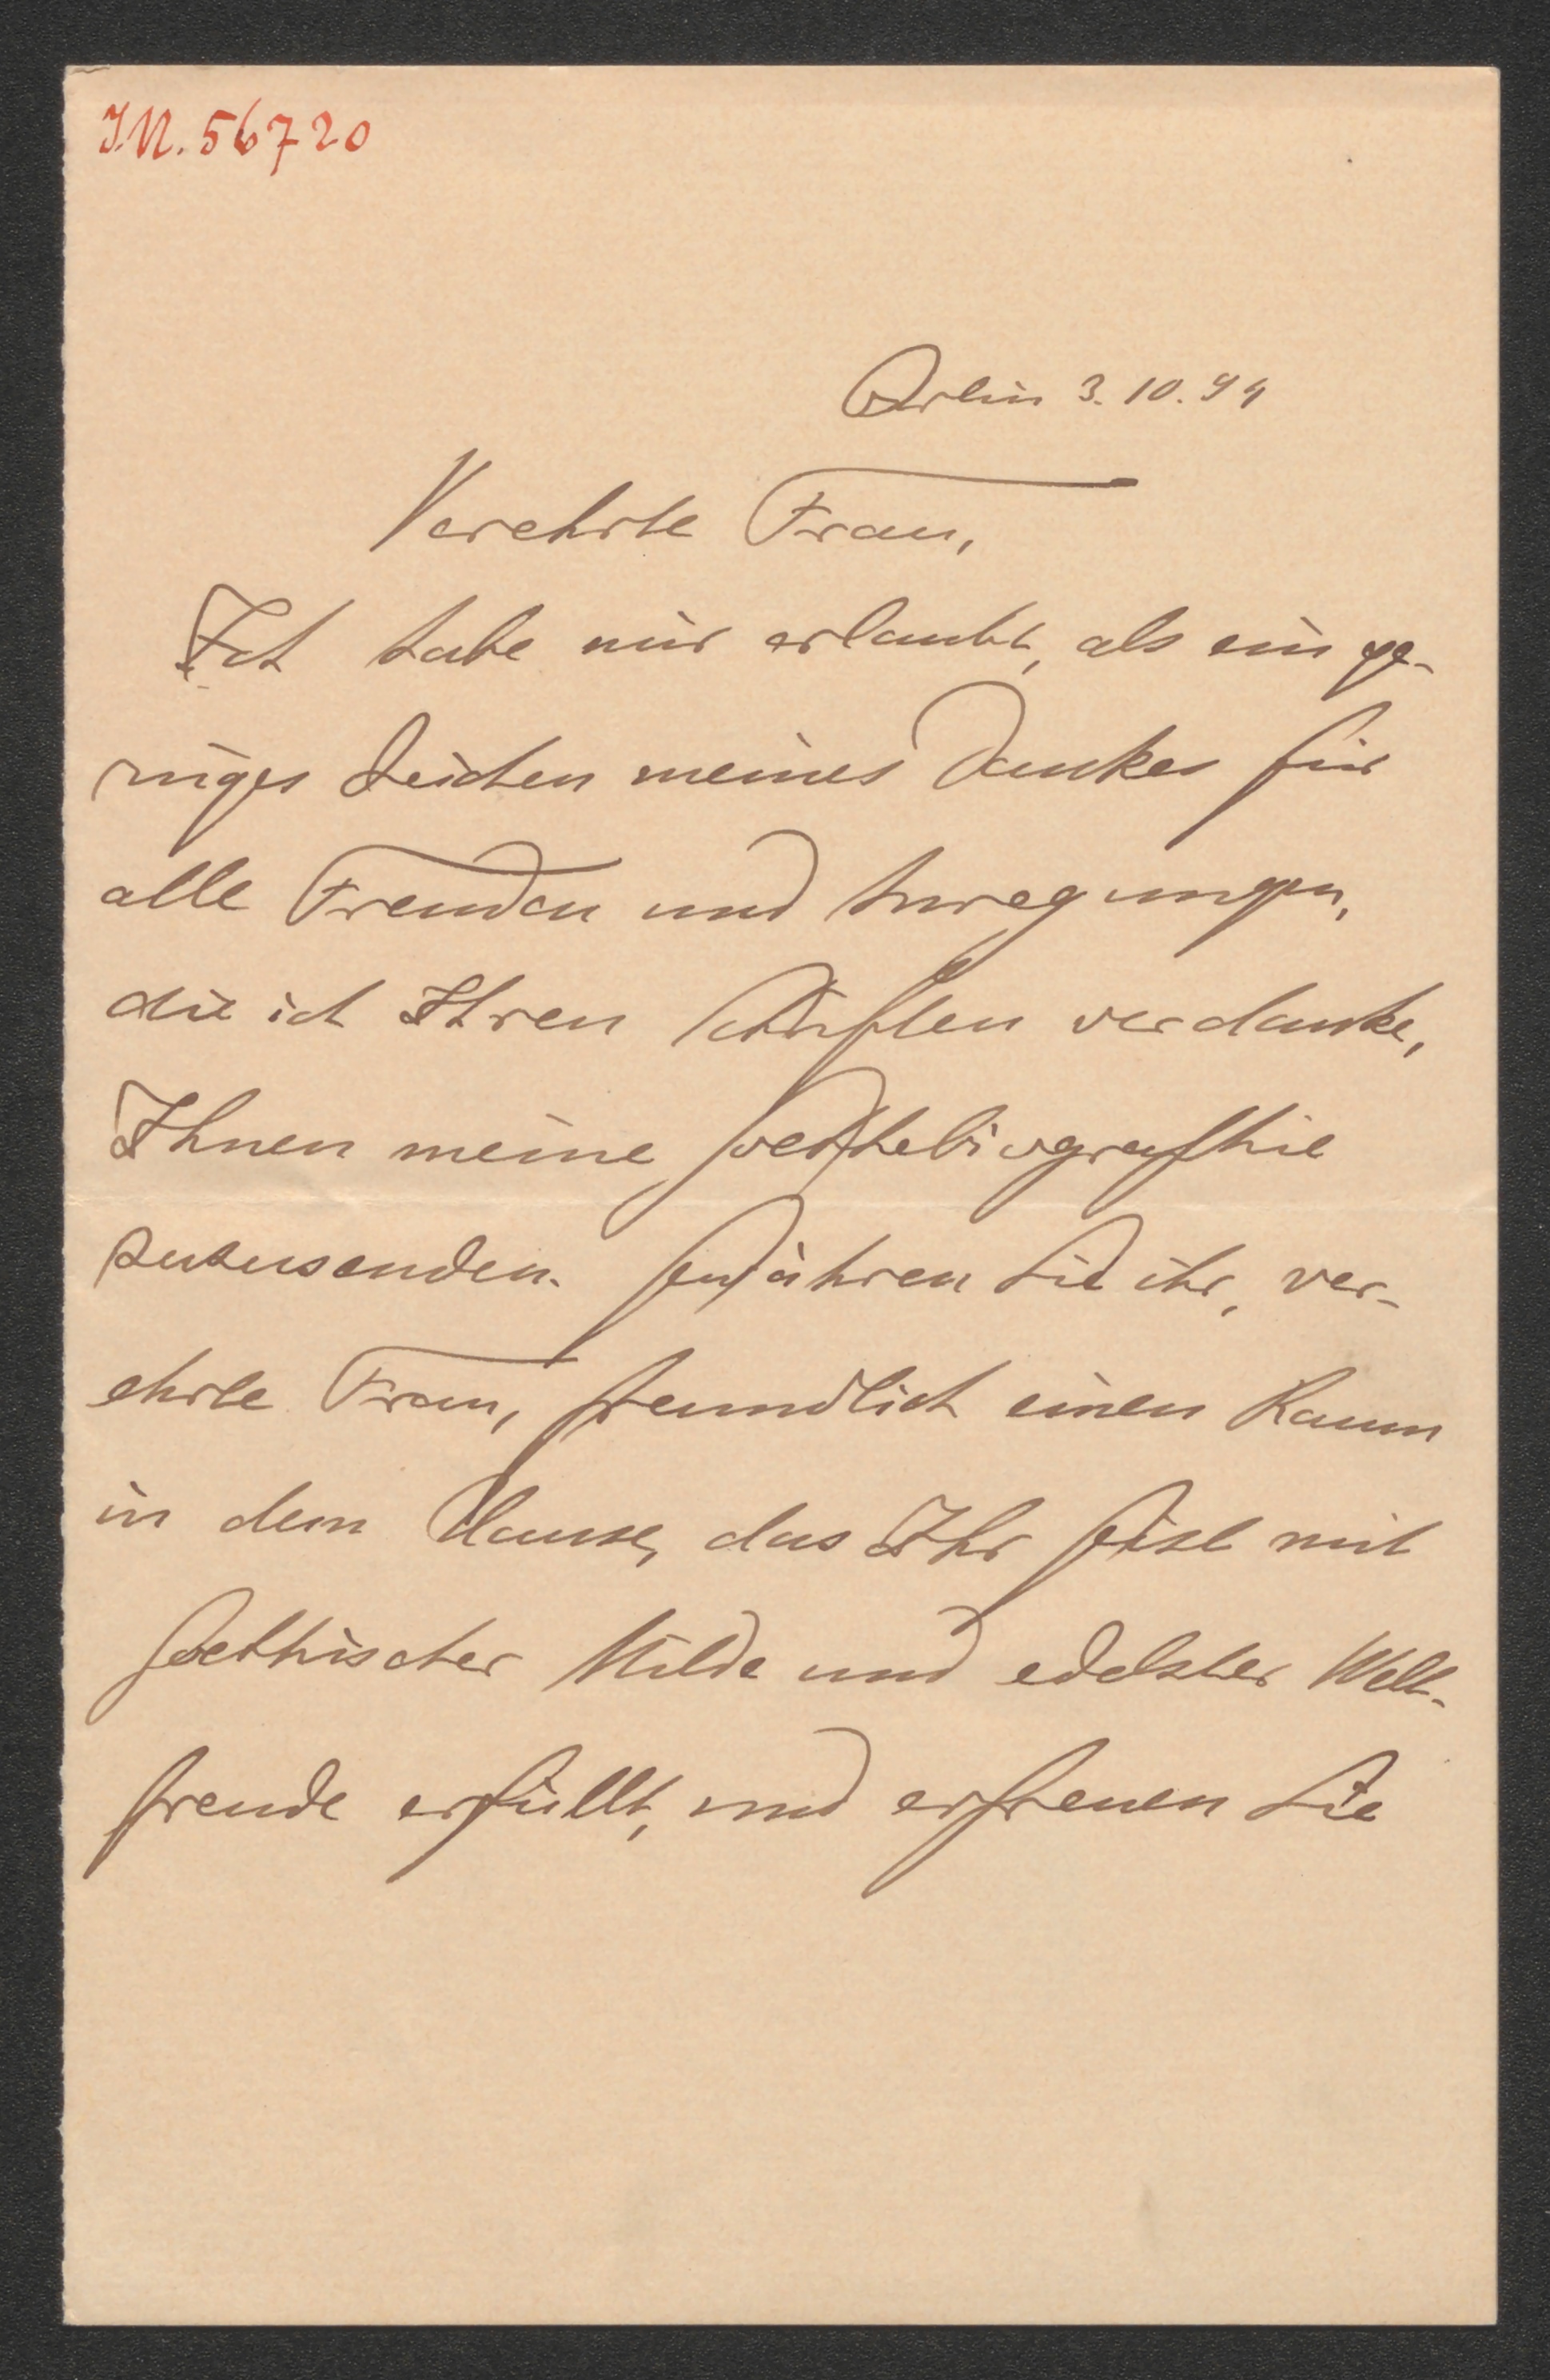 I.N. 56720
Berlin 3. 10. 94
Verehrte Frau,
Ich habe mir erlaubt, als ein ge-
ringes Zeichen meines Dankes für
alle Freuden und Anregungen,
die ich Ihren Schriften verdanke,
Ihnen meine Goethebiographie
zuzusenden. Gewähren Sie ihr, ver-
ehrte Frau, freundlich einen Raum
in dem Hause, das Ihr Geist mit
Goethischer Milde und edelster Welt-
freude erfüllt, und erfreuen Sie